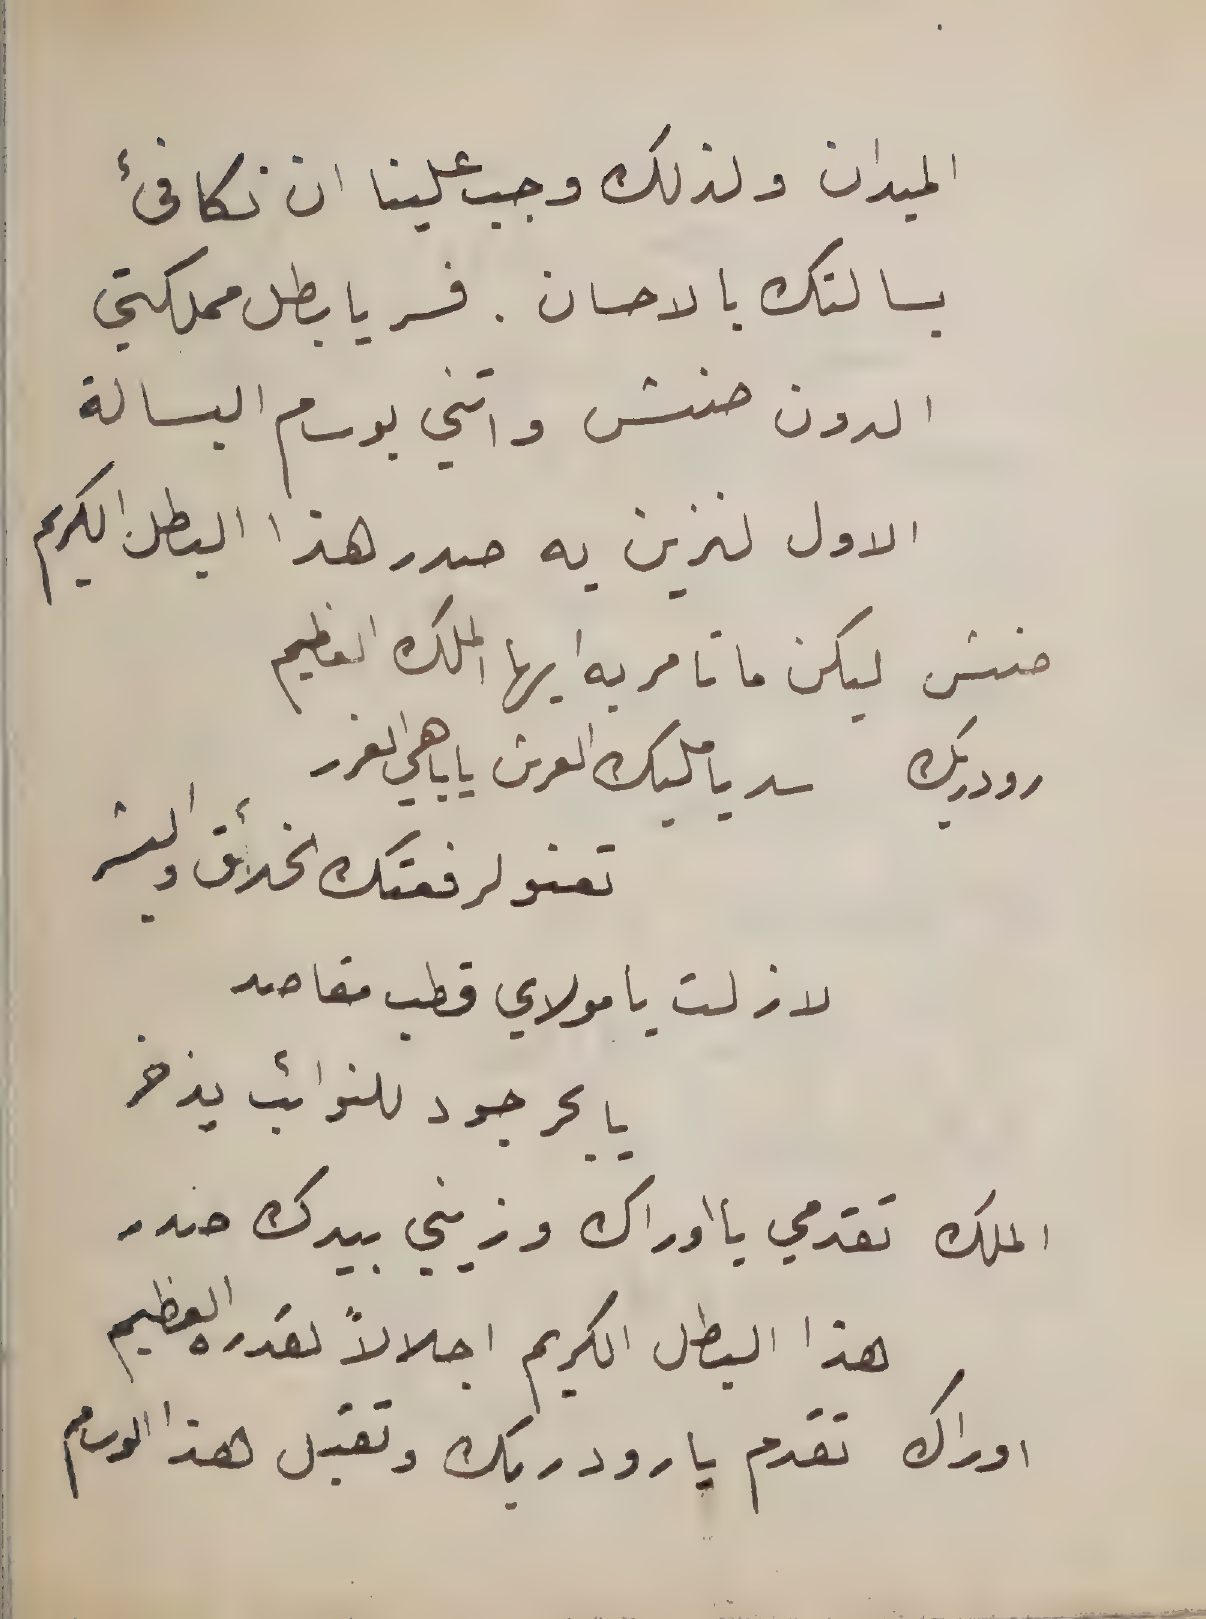 الميدان ولذلك وجب علينا ان نكافئ
بسالتك بالاحسان . فسر يا بطل مملكتي
الدون صنش واتني بوسام البسالة
الاول لنزين به صدر هذا البطل الكريم
صنش ليكن ما تامر به ايها الملك العظيم
رودريك سد يا مليك العرش يا باهي الغرر
تعنو لرفعتك الخلائق والبشر
لازلت يا مولاي قطب مقاصد
يا بحر جود للنوائب يذخر
الملك تقدمي يا اوراك وزيني بيدك صدر
هذا البطل الكريم اجلالاً لقدره العظيم
اوراك تقدم يا رودريك وتقبل هذا الوسام